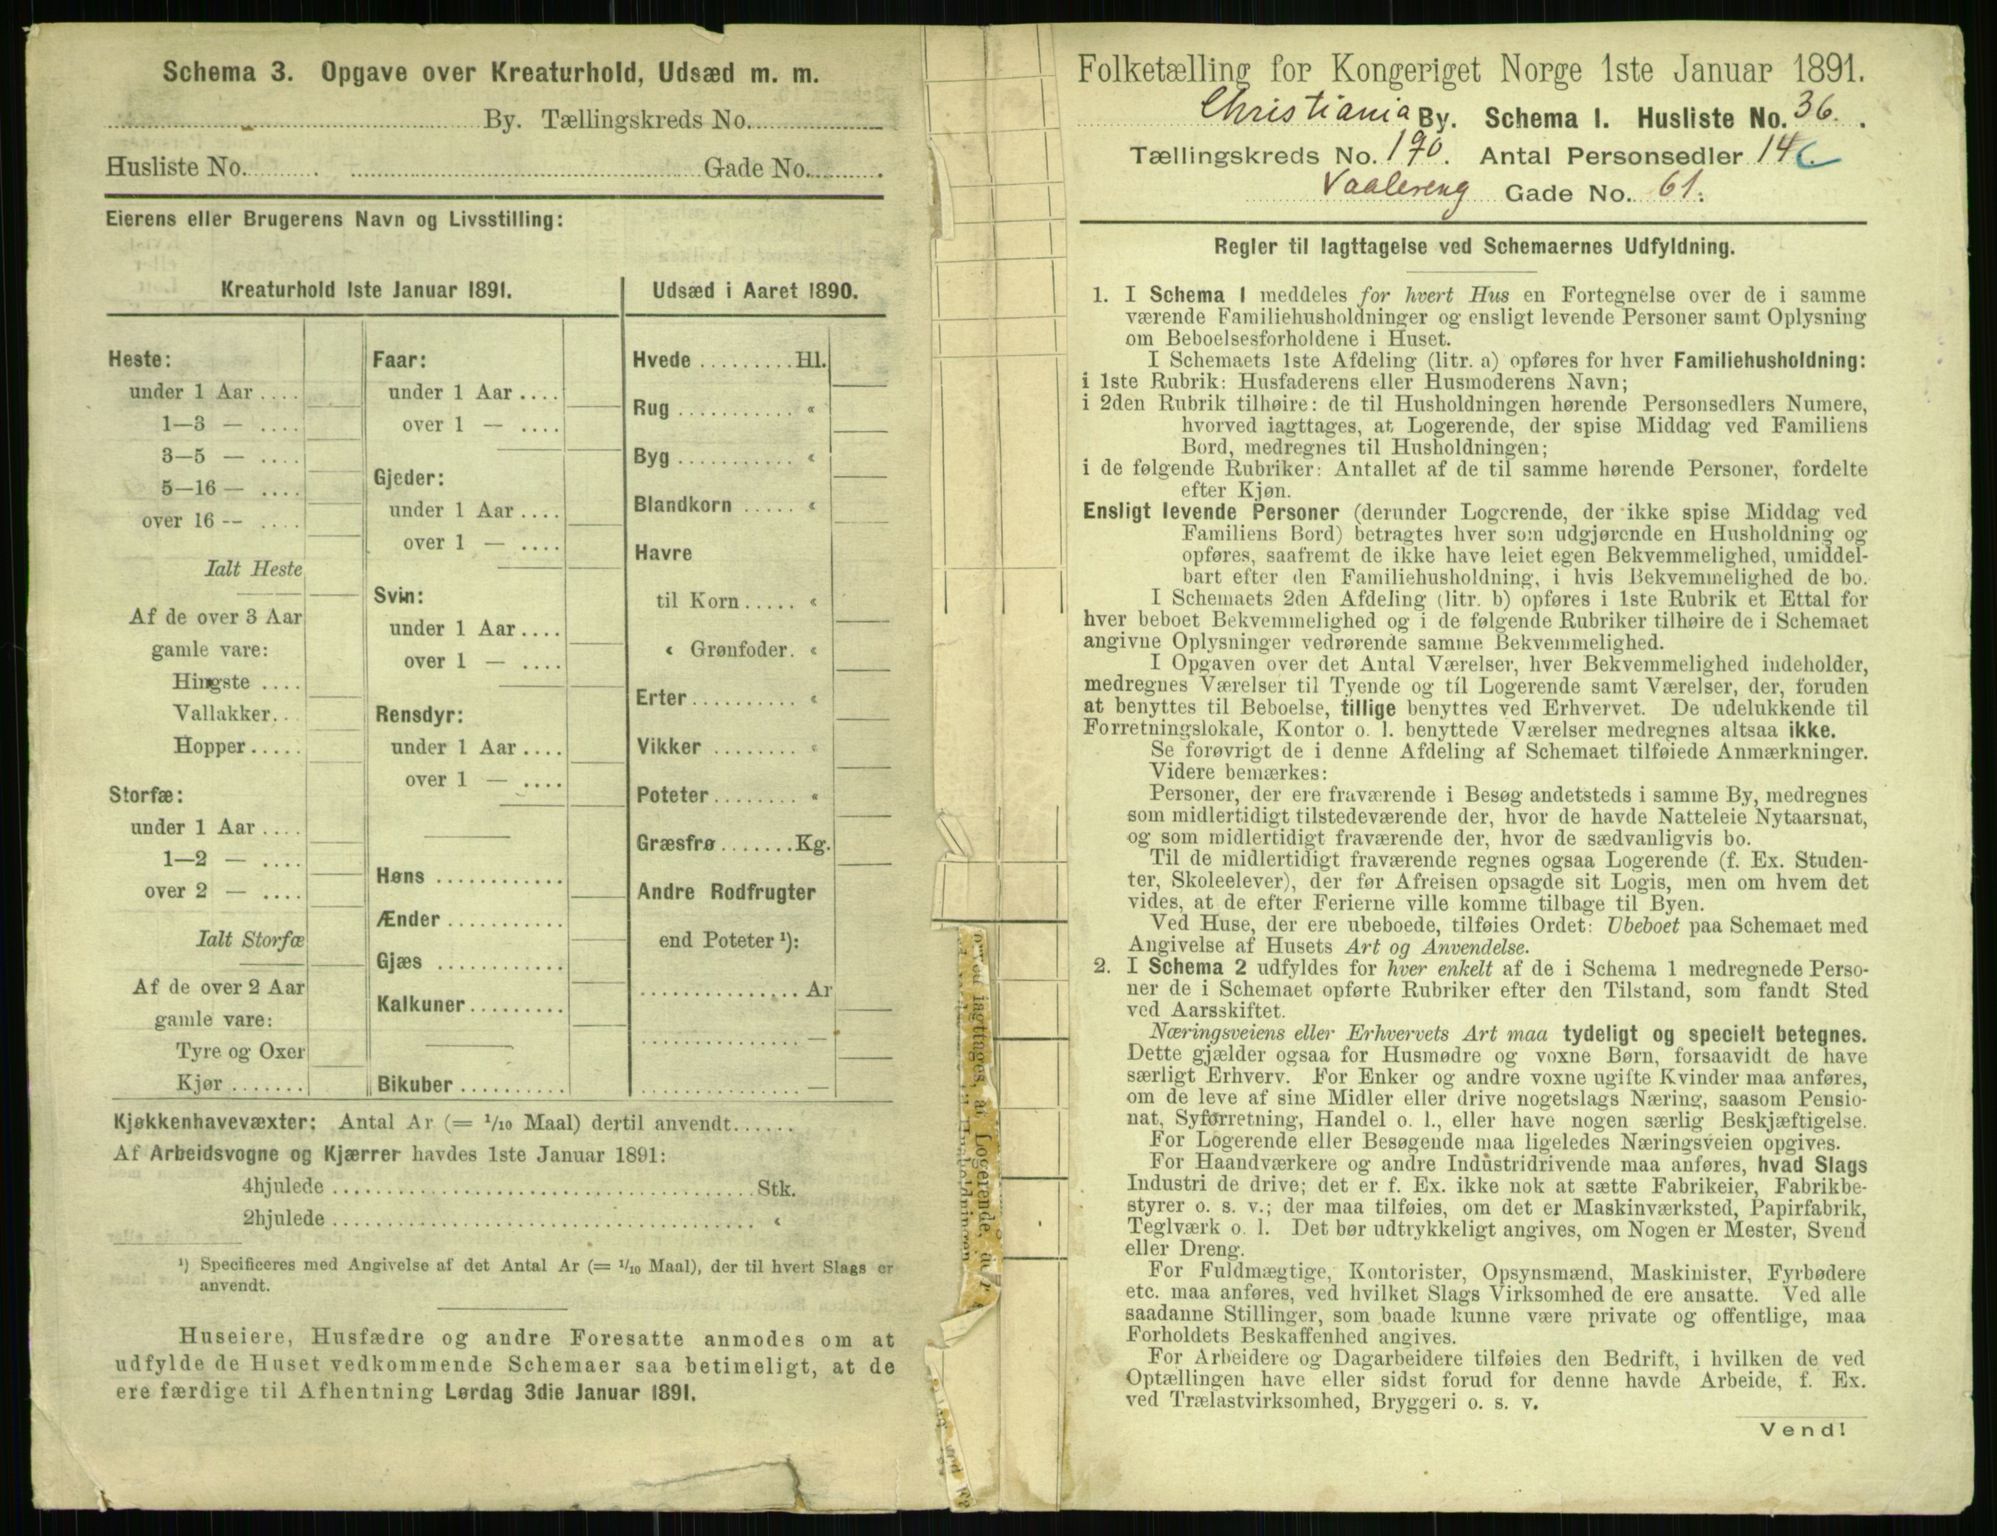 Schema 3. Opgave over Kreaturhold, Udsæd m. m.
By. Tællingskreds No.
Husliste No. Gade No.
Eierens eller Brugerens Navn og Livsstilling:
Kreaturhold 1ste Januar 1891.
Heste:
under 1 Aar ....
1—3 — ....
3—5 — ....
5—16 — ....
over 16 -- ....
Ialt Heste
Af de over 3 Aar
gamle vare:
Hingste ....
Vallakker..
Hopper.....
Storfæ:
under 1 Aar ....
1—2 — ....
over 2 — ....
Ialt Storfæ
Af de over 2 Aar
gamle vare:
Tyre og Oxer
Kjør .......
Faar:
under 1 Aar ....
over 1 — ....
Gjeder:
under 1 Aar ....
over 1 — ....
Svin:
under 1 Aar ....
over 1 — ....
Rensdyr:
under 1 Aar ....
over 1 — ....
Høns ............
Ænder ...........
Gjæs ............
Kalkuner.........
Bikuber ..........
Udsæd i Aaret 1890.
Hvede .........Hl.
Rug ........... «
Byg ........... «
Blandkorn ..... «
Havre
til Korn..... «
« Grønfoder. «
Erter .......... «
Vikker ......... «
Poteter........ «
Græsfrø .......Kg.
Andre Rodfrugter
end Poteter ¹):
............... Ar
............... —
............... —
Kjøkkenhavevæxter: Antal Ar (= 1/10 Maal) dertil anvendt......
Af Arbeidsvogne og Kjærrer havdes 1ste Januar 1891:
4hjulede ....................................Stk.
2hjulede .................................... «
¹) Specificeres med Angivelse af det Antal Ar (= 1/10 Maal), der til hvert Slags er
anvendt.
Huseiere, Husfædre og andre Foresatte anmodes om at
udfylde de Huset vedkommende Schemaer saa betimeligt, at de
ere færdige til Afhentning Lørdag 3die Januar 1891.
iagttages, at Logerende,
Folketælling for Kongeriget Norge 1ste Januar 1891.
Christiania By. Schema I. Husliste No. 36.
Tællingskreds No. 190. Antal Personsedler 14
Vaalereng Gade No. 61.
Regler til Iagttagelse ved Schemaernes Udfyldning.
1. I Schema 1 meddeles for hvert Hus en Fortegnelse over de i samme
værende Familiehusholdninger og ensligt levende Personer samt Oplysning
om Beboelsesforholdene i Huset.
I Schemaets 1ste Afdeling (litr. a) opføres for hver Familiehusholdning:
i 1ste Rubrik: Husfaderens eller Husmoderens Navn;
i 2den Rubrik tilhøire: de til Husholdningen hørende Personsedlers Numere,
hvorved iagttages, at Logerende, der spise Middag ved Familiens
Bord, medregnes til Husholdningen;
i de følgende Rubriker: Antallet af de til samme hørende Personer, fordelte
efter Kjøn.
Ensligt levende Personer (derunder Logerende, der ikke spise Middag ved
Familiens Bord) betragtes hver som udgjørende en Husholdning og
opføres, saafremt de ikke have leiet egen Bekvemmelighed, umiddel-
bart efter den Familiehusholdning, i hvis Bekvemmelighed de bo.
I Schemaets 2den Afdeling (litr. b) opføres i 1ste Rubrik et Ettal for
hver beboet Bekvemmelighed og i de følgende Rubriker tilhøire de i Schemaet
angivne Oplysninger vedrørende samme Bekvemmelighed.
I Opgaven over det Antal Værelser, hver Bekvemmelighed indeholder,
medregnes Værelser til Tyende og til Logerende samt Værelser, der, foruden
at benyttes til Beboelse, tillige benyttes ved Erhvervet. De udelukkende til
Forretningslokale, Kontor o. l. benyttede Værelser medregnes altsaa ikke.
Se forøvrigt de i denne Afdeling af Schemaet tilføiede Anmærkninger.
Videre bemærkes:
Personer, der ere fraværende i Besøg andetsteds i samme By, medregnes
som midlertidigt tilstedeværende der, hvor de havde Natteleie Nytaarsnat,
og som midlertidigt fraværende der, hvor de sædvanligvis bo.
Til de midlertidigt fraværende regnes ogsaa Logerende (f. Ex. Studen-
ter, Skoleelever), der før Afreisen opsagde sit Logis, men om hvem det
vides, at de efter Ferierne ville komme tilbage til Byen.
Ved Huse, der ere ubeboede, tilføies Ordet: Ubeboet paa Schemaet med
Angivelse af Husets Art og Anvendelse.
2. I Schema 2 udfyldes for hver enkelt af de i Schema 1 medregnede Perso-
ner de i Schemaet opførte Rubriker efter den Tilstand, som fandt Sted
ved Aarsskiftet.
Næringsveiens eller Erhvervets Art maa tydeligt og specielt betegnes.
Dette gjælder ogsaa for Husmødre og voxne Børn, forsaavidt de have
særligt Erhverv. For Enker og andre voxne ugifte Kvinder maa anføres,
om de leve af sine Midler eller drive nogetslags Næring, saasom Pensio-
nat, Syforretning, Handel o. l., eller have nogen særlig Beskjæftigelse.
For Logerende eller Besøgende maa ligeledes Næringsveien opgives.
For Haandværkere og andre Industridrivende maa anføres, hvad Slags
Industri de drive; det er f. Ex. ikke nok at sætte Fabrikeier, Fabrikbe-
styrer o. s. v.; der maa tilføies, om det er Maskinværksted, Papirfabrik,
Teglværk o. l. Det bør udtrykkeligt angives, om Nogen er Mester, Svend
eller Dreng.
For Fuldmægtige, Kontorister, Opsynsmænd, Maskinister, Fyrbødere
etc. maa anføres, ved hvilket Slags Virksomhed de ere ansatte. Ved alle
saadanne Stillinger, som baade kunne være private og offentlige, maa
Forholdets Beskaffenhed angives.
For Arbeidere og Dagarbeidere tilføies den Bedrift, i hvilken de ved
Optællingen have eller sidst forud for denne havde Arbeide, f. Ex.
ved Trælastvirksomhed, Bryggeri o. s. v.
Vend!